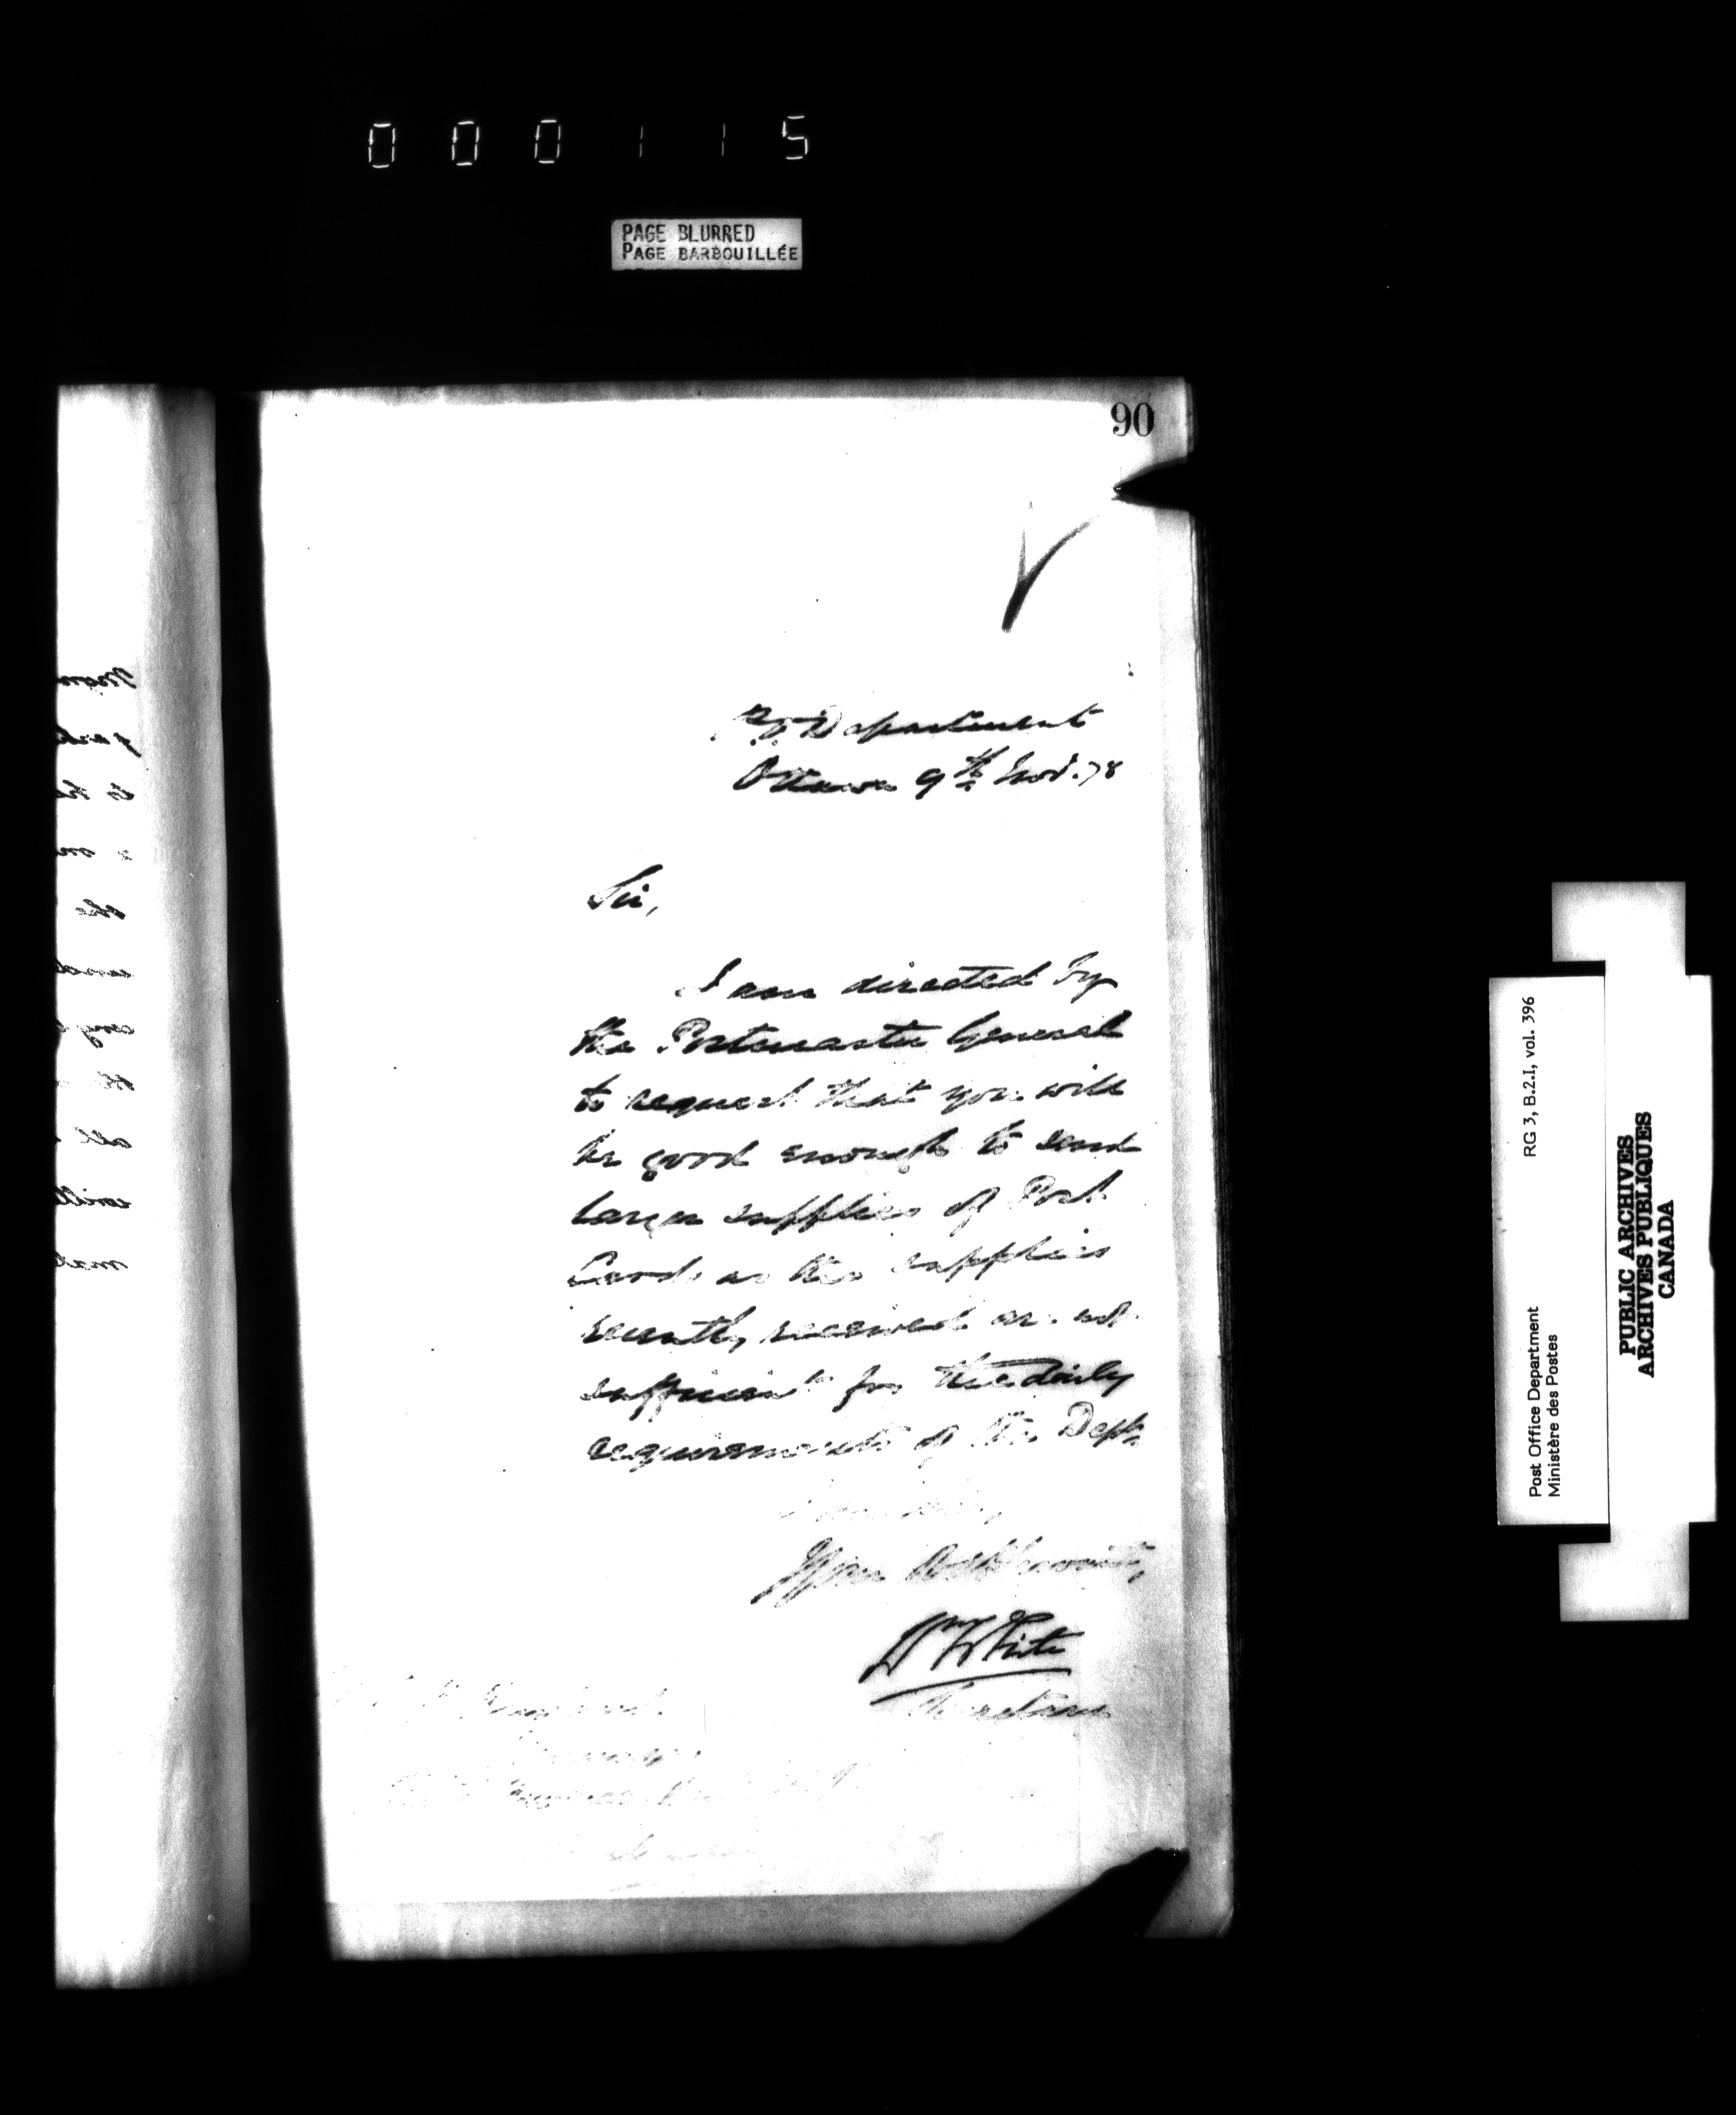 000115
PAGE BLURRED
PAGE BARBOUILLÉE
90
P.O. Department
Ottawa 9th Nov. 78
Sir,
I am directed by
the Postmaster General
to request that you will
be good enough to send
larger supplies of Post
Cards as the supplies
recently received are not
sufficient for the daily
requirements of the Dept.
I am, Sir,
Your Obt Servant,
Wm White
Secretary
RG 3, B.2.I, vol. 396
Post Office Department
Ministère des Postes
PUBLIC ARCHIVES
ARCHIVES PUBLIQUES
CANADA